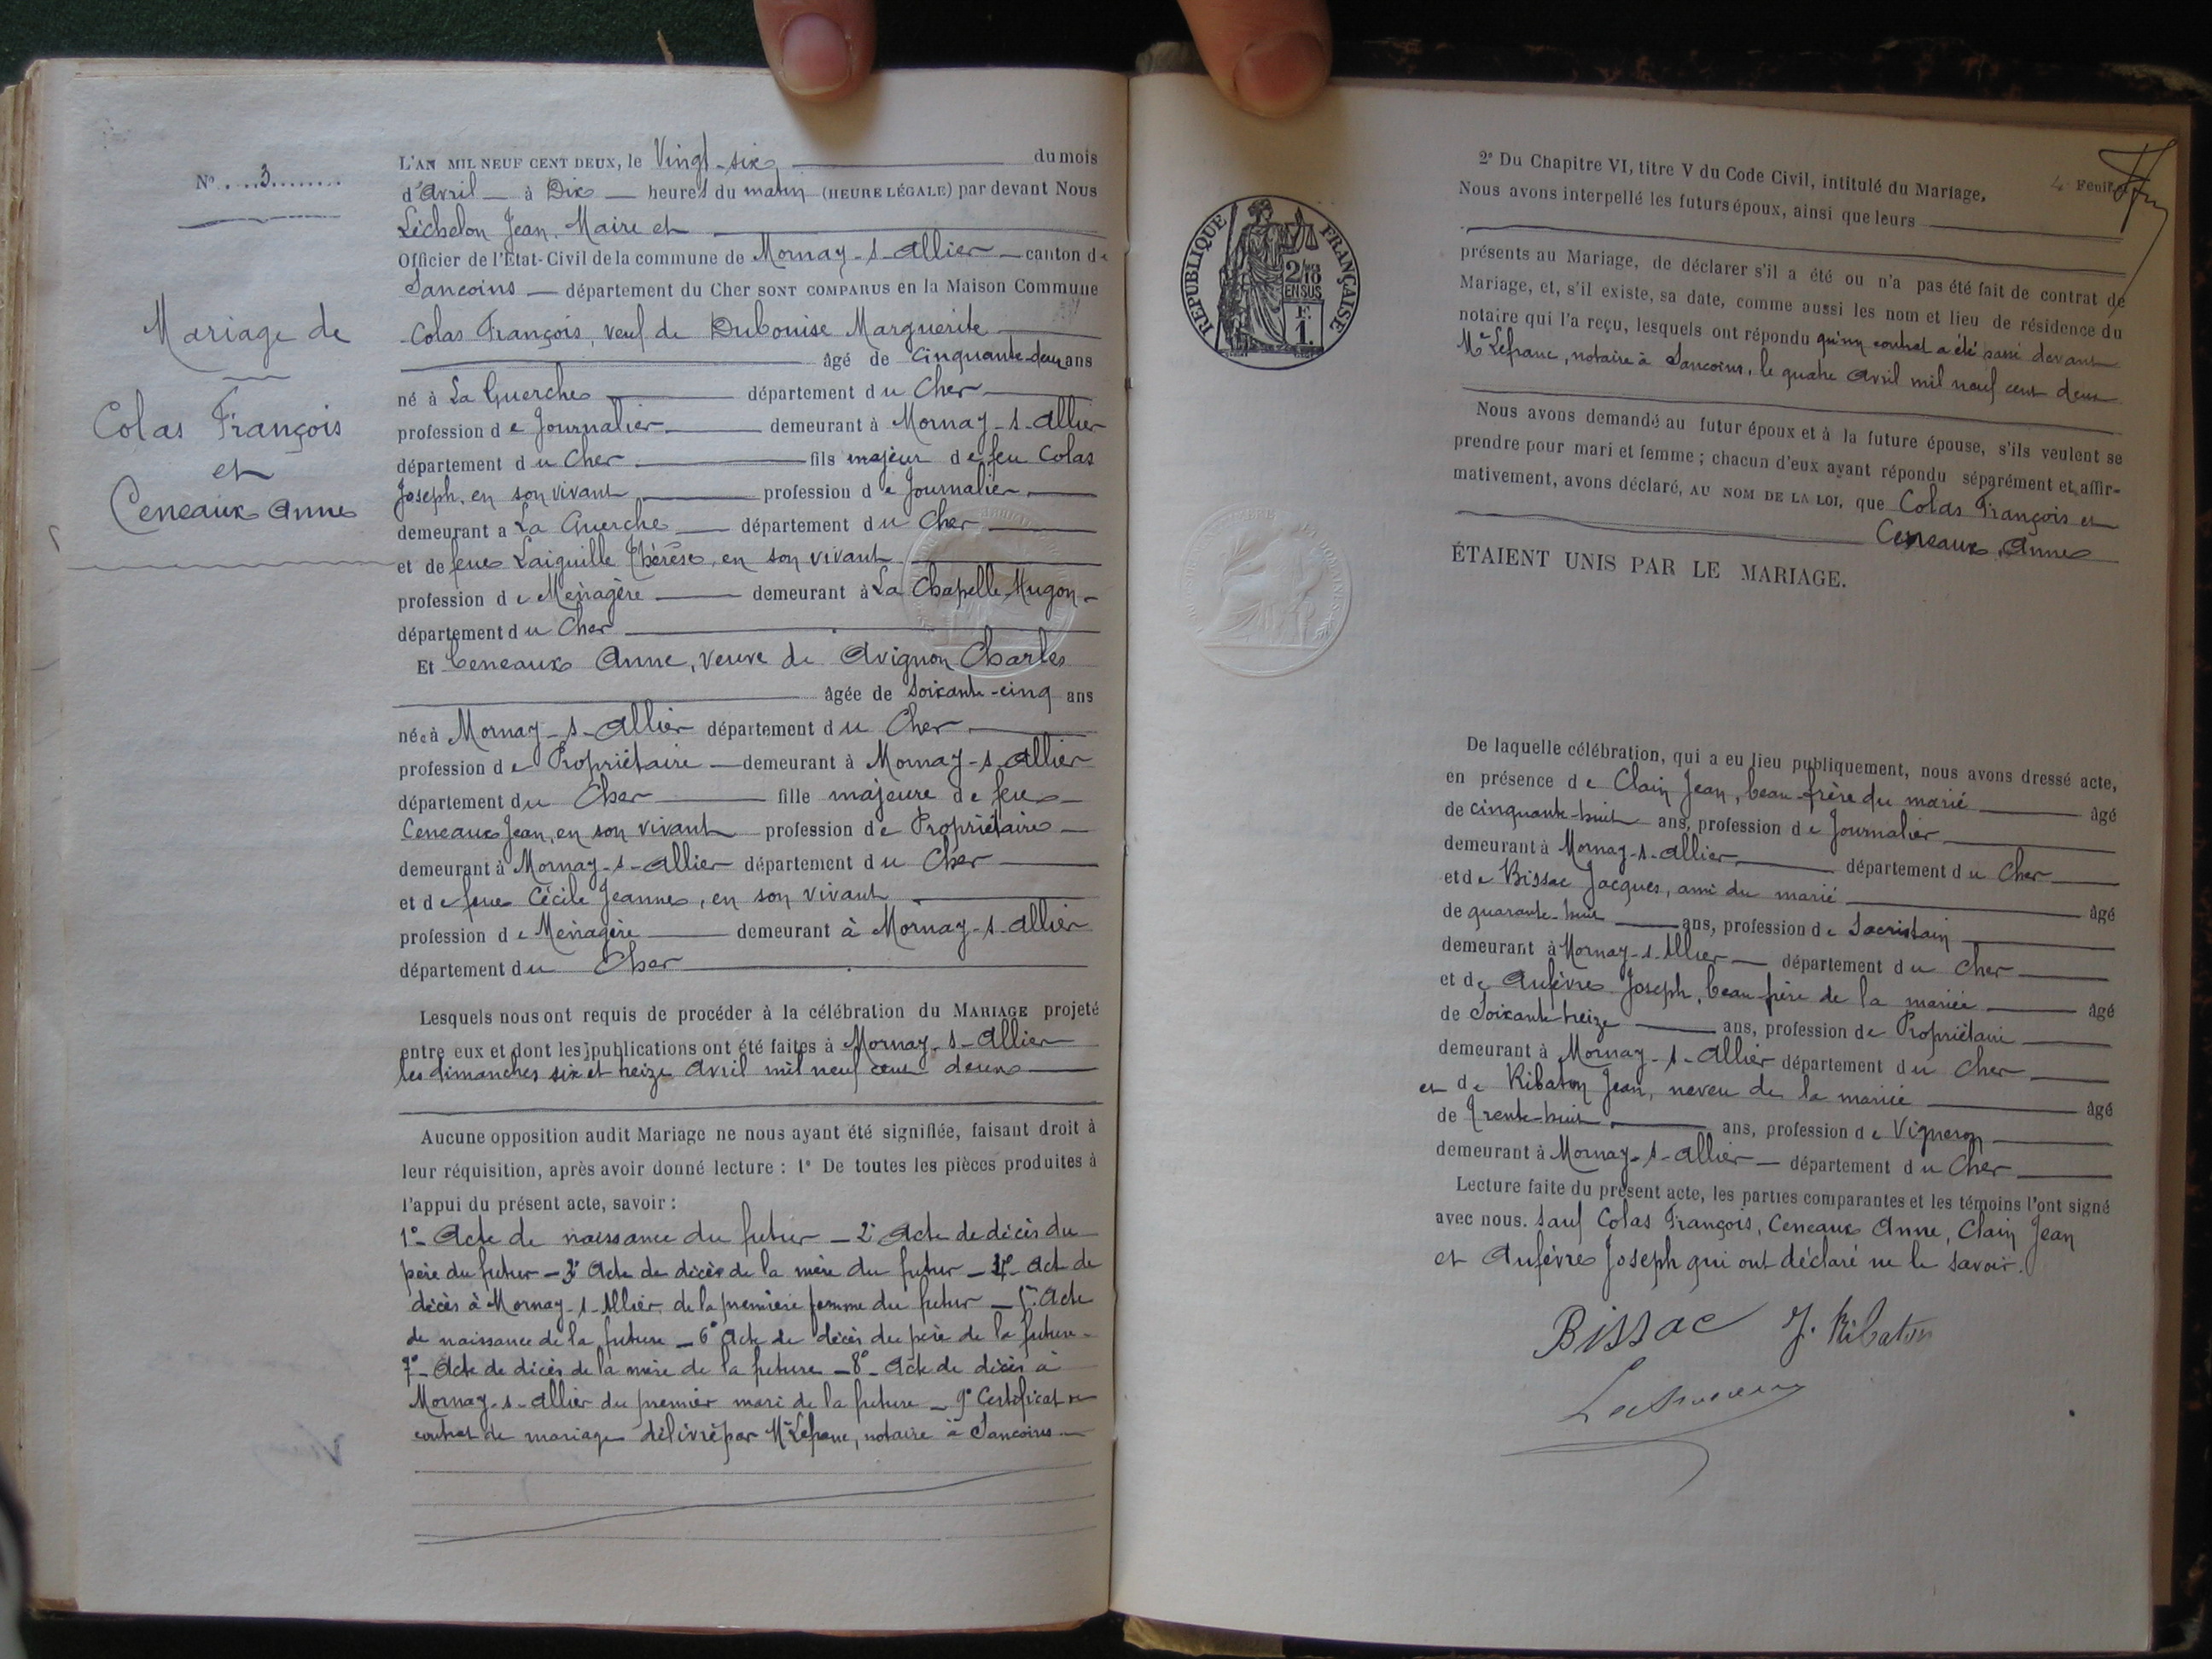 N° 3
Mariage de
Colas François
et
Ceneaux Anne
L'AN MIL NEUF CENT DEUX, le Vingt-six du mois
d'Avril à Dix heures du matin (HEURE LÉGALE) par devant Nous
Léchelon Jean, Maire et
Officier de l'État-Civil de la commune de Mornay-s-Allier canton de
Sancoins département du Cher SONT COMPARUS en la Maison Commune
Colas François, veuf de Dubouise Marguerite
âgé de Cinquante-deux ans
né à La Guerche département du Cher
profession de Journalier demeurant à Mornay-s-Allier
département du Cher fils majeur de feu Colas
Joseph, en son vivant profession de Journalier
demeurant à La Guerche département du Cher
et de feue Laiguille Thérèse, en son vivant
profession de Ménagère demeurant à La Chapelle-Hugon
département du Cher
Et Ceneaux Anne, veuve de Avignon Charles
âgée de soixante-cinq ans
née à Mornay-s-Allier département du Cher
profession de Propriétaire demeurant à Mornay-s-Allier
département du Cher fille majeure de feu
Ceneaux Jean, en son vivant profession de Propriétaire
demeurant à Mornay-s-Allier département du Cher
et de feue Cécile Jeanne, en son vivant
profession de Ménagère demeurant à Mornay-s-Allier
département du Cher
Lesquels nous ont requis de procéder à la célébration du MARIAGE projeté
entre eux et dont les publications ont été faites à Mornay-s-Allier
les dimanches six et treize Avril mil neuf cent deux
Aucune opposition audit Mariage ne nous ayant été signifiée, faisant droit à
leur réquisition, après avoir donné lecture : 1° De toutes les pièces produites à
l'appui du présent acte, savoir :
1°- Acte de naissance du futur - 2° Acte de décès du
père du futur - 3° Acte de décès de la mère du futur - 4° Acte de
décès à Mornay-s-Allier de la première femme du futur - 5° Acte
de naissance de la future - 6° Acte de décès du père de la future -
7°- Acte de décès de la mère de la future - 8°- Acte de décès à
Mornay-s-Allier du premier mari de la future - 9° Certificat de
contrat de mariage délivré par Me Lefranc, notaire à Sancoins
4e Feuillet
RÉPUBLIQUE FRANÇAISE
2/10
EN SUS
F.
1.
2° Du Chapitre VI, titre V du Code Civil, intitulé du Mariage,
Nous avons interpellé les futurs époux, ainsi que leurs
présents au Mariage, de déclarer s'il a été ou n'a pas été fait de contrat de
Mariage, et, s'il existe, sa date, comme aussi les nom et lieu de résidence du
notaire qui l'a reçu, lesquels ont répondu qu'un contrat a été passé devant
Me Lefranc, notaire à Sancoins, le quatre Avril mil neuf cent deux
Nous avons demandé au futur époux et à la future épouse, s'ils veulent se
prendre pour mari et femme ; chacun d'eux ayant répondu séparément et affir-
mativement, avons déclaré, AU NOM DE LA LOI, que Colas François et
Ceneaux Anne
ÉTAIENT UNIS PAR LE MARIAGE.
De laquelle célébration, qui a eu lieu publiquement, nous avons dressé acte,
en présence de Clain Jean, beau-frère du marié âgé
de cinquante-huit ans, profession de Journalier
demeurant à Mornay-s-Allier département du Cher
et de Bissac Jacques, ami du marié âgé
de quarante-huit ans, profession de Sacristain
demeurant à Mornay-s-Allier département du Cher
et de Aufèvre Joseph, beau-frère de la mariée âgé
de Soixante-treize ans, profession de Propriétaire
demeurant à Mornay-s-Allier département du Cher
et de Ribaton Jean, neveu de la mariée âgé
de Trente-huit ans, profession de Vigneron
demeurant à Mornay-s-Allier département du Cher
Lecture faite du présent acte, les parties comparantes et les témoins l'ont signé
avec nous. Sauf Colas François, Ceneaux Anne, Clain Jean
et Aufèvre Joseph qui ont déclaré ne le savoir.
Bissac J. Ribaton